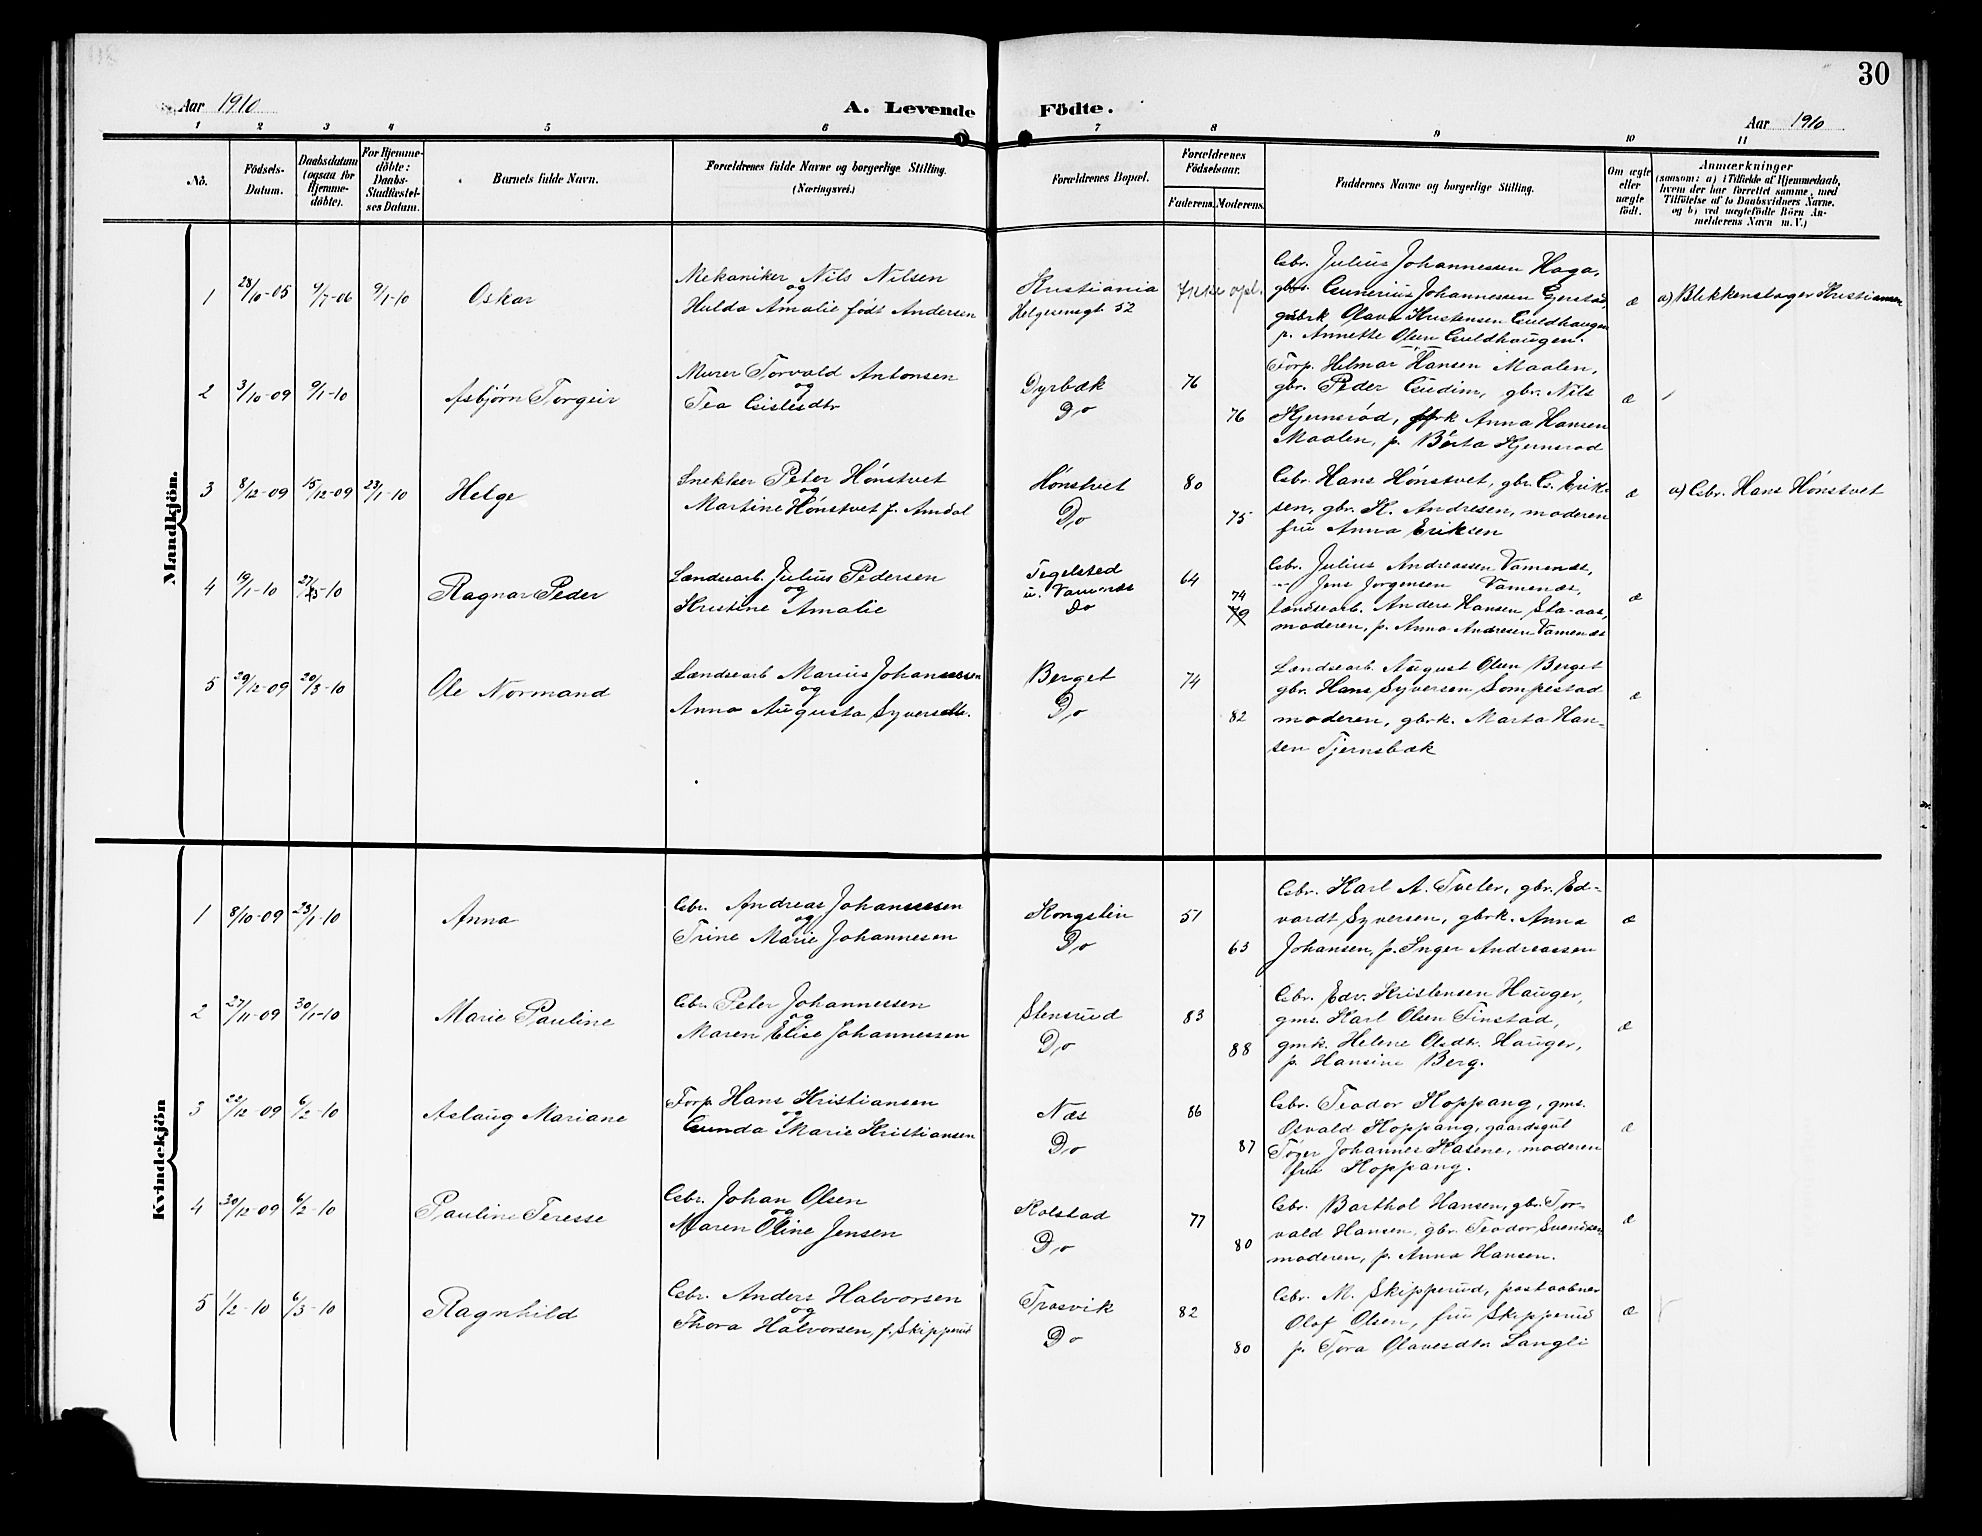 30
Aar 1910
A. Levende Födte.
Aar 1910
1 2 3 4 5 6 7 8 9 10 11
Nö.
Födsels-Datum.
Daabsdatum (ogsaa for Hjemme-döbte).
For Hjemme-döbte: Daabs-Stadfæstel-ses Datum.
Barnets fulde Navn.
Forældrenes fulde Navne og borgerlige Stilling.
(Næringsvei.)
Forældrenes Bopæl.
Forældrenes Födselsaar.
Faderens. Moderens.
Faddernes Navne og borgerlige Stilling.
Om ægte eller uægte födt.
Anmærkninger
(saasom: a) i Tilfælde af Hjemmedaab,
hvem der har forrettet samme, med
Tilföielse af to Daabsvidners Navne.
og b) ved uægtefödte Börn An-
melderens Navn m. V.)
Mandkjön.
1 28/10-05 4/7-06 9/1-10 Oskar
Mekaniker Nils Nilsen
og
Hulda Amalie født Andersen
Kristiania
Helgesensgt 52
Ikke opl.
Gbr. Julius Johannessen Haga,
gbr. Gunerius Johannessen Gjerstad,
gbrk Olava Kristensen Guldhaugen
p. Annette Olsen Guldhaugen.
æ
a) Blikkenslager Kristiansen
2 3/10-09 9/1-10 Asbjørn Torgeir
Murer Torvald Antonsen
og
Tea Gislesdtr
Dyrbæk
Do
76
76
Forp. Helmar Hansen Maalen,
gbr. Peder Gudim, gbr. Nils
Kjernsrød, frk Anna Hansen
Maalen, p. Børta Kjernsrod
æ
3 8/12-09 15/12-09 23/1-10 Helge
Snekker Peter Hønstvet
og
Martine Hønstvet f. Amdal
Hønstvet
Do
80
75
Gbr. Hans Hønstvet, gbr. G. Erik-
sen, gbr. K. Andresen, moderen
fru Anna Eriksen
æ
a) Gbr. Hans Hønstvet
4 19/1-10 27/-10 Ragnar Peder
Lændsearb. Julius Pedersen
og
Kristine Amalie
Tegelsted
u. Vamenæs
Do
64
74
79
Gbr. Julius Andreassen Vamenæs,
-"- Jens Jorgensen Vamenæs,
Lændsearb. Anders Hansen Sta-aas,
moderen, p. Anna Andresen Vamenæs
æ
5 29/12-09 20/3-10 Ole Normand
Lændsearb Marius Johannessen
og
Anna Augusta Syversdtr.
Berget
Do
74
82
Lændsearb. August Olsen Berget
gbr. Hans Syversen Sompestad
moderen, gbrk. Marta Han-
sen Tjernsbæk
æ
Kvindekjön
1 8/10-09 23/1-10 Anna
Gbr. Andreas Johannessen
og
Trine Marie Johannesen
Kongslin
Do
51
63
Gbr. Karl A. Tveter, gbr. Ed-
vardt Syversen, gbrk. Anna
Johansen, p. Inger Andreassen
æ
2 27/11-09 30/1-10 Marie Pauline
Gbr. Peter Johannessen
og
Maren Elise Johannessen
Stensrud
Do
83
88
Gbr. Edv. Kristensen Hauger,
gms. Karl Olsen Finstad,
gmk. Helene Olsdtr. Hauger,
p. Hansine Berg.
æ
3 22/12-09 6/2-10 Aslaug Mariane
Forp. Hans Kristiansen
og
Gunda Marie Kristiansen
Næs
Do
86
87
Gbr. Teodor Hoppang, gms.
Osvald Hoppang, gaardsgut
Tøger Johannes Hasene, moderen
fru Hoppang.
æ
4 30/12-09 6/2-10 Pauline Teresse
Gbr. Johan Olsen
og
Maren Oline Jensen
Kolstad
Do
77
80
Gbr. Barthol Hansen, gbr. Tor-
vald Hansen, gbr. Teodor Svendsen
moderen, p. Anna Hansen.
æ
5 1/2-10 6/3-10 Ragnhild
Gbr. Anders Halvorsen
og
Thora Halvorsen, f. Skipperud
Trosvik
Do
82
80
Gbr. M. Skipperud, postaabner
Olaf Olsen, fru Skipperud
p. Tora Olavesdtr Langli
æ